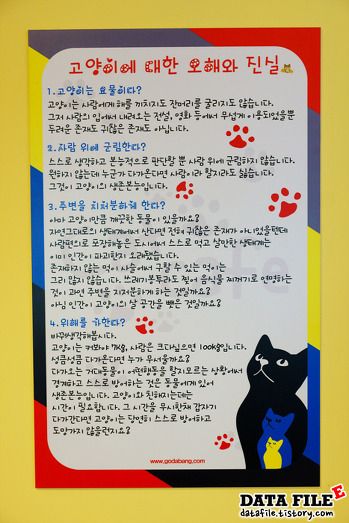 고양이에 대한 오해와 진실
1. 고양이는 요물이다?
고양이는 사람에게 해를 끼치지도 잔머리를 굴리지도 않습니다.
그저 사람의 입에서 내려오는 전설, 영화 등에서 무섭게 이용되었을뿐
두려운 존재도 귀찮은 존재도 아닙니다.
2. 사람 위에 군림한다?
스스로 생각하고 본능적으로 판단할 뿐 사람 위에 군림하지 않습니다.
원하지 않는데 누군가 다가온다면 사람이라 할지라도 싫습니다.
그것이 고양이의 생존본능입니다.
3. 주변을 지저분하게 한다?
아마 고양이만큼 깨끗한 동물이 있을까요?
자연그대로의 생태계에서 산다면 전혀 귀찮은 존재가 아니었을텐데
사람편으로 포장해놓은 도시에서 스스로 먹고 살만한 생태계는
이미 인간이 파괴한지 오래됐습니다.
존재하지 않는 먹이 사슬에서 구할 수 있는 먹이는
그리 많지 않습니다. 쓰레기봉투라도 찢어 음식을 찌꺼기로 연명하는
것이 과연 주변을 지저분하게 하는 것일까요?
아님 인간이 고양이의 살 공간을 뺏은 것일까요?
4. 위해를 가한다?
바꿔생각해봅시다.
고양이는 커봐야 7kg, 사람은 크다싶으면 100kg입니다.
성큼성큼 다가온다면 누가 무서울까요?
다가오는 거대동물이 어떤행동을 할지모르는 상황에서
경계하고 스스로 방어하는 것은 동물에게 있어
생존본능입니다. 고양이와 친해지는데는
시간이 필요합니다. 그 시간을 무시한채 갑자기
다가간다면 고양이는 당연히 스스로 방어하고
도망가지 않을런지요?
www.godabang.com
DATA FILE E
datafile.tistory.com